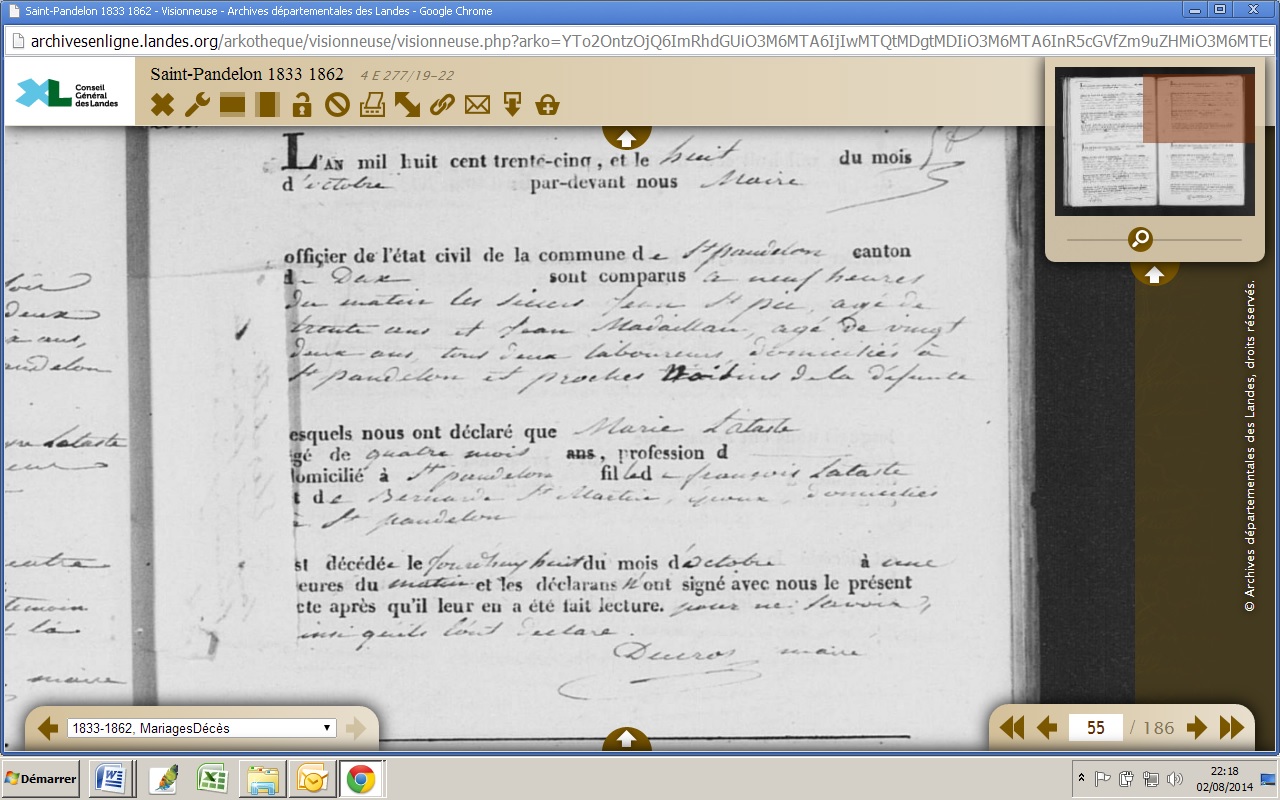 Saint-Pandelon 1833 1862 - Visionneuse - Archives départementales des Landes - Google Chrome
archivesenligne.landes.org/arkotheque/visionneuse/visionneuse.php?arko=
XL Conseil Général des Landes
Saint-Pandelon 1833 1862 4 E 277/19-22
L'AN mil huit cent trente-cinq, et le huit du mois
d'octobre par-devant nous Maire
offiçier de l'état civil de la commune de St pandelon canton
de Dax sont comparus à neuf heures
du matin les sieurs Jean St pic, agé de
trente ans et Jean Madaillan, agé de vingt
deux ans, tous deux laboureurs, domiciliés à
St pandelon et proches Voisins de la défunte
esquels nous ont déclaré que Marie Lataste
gé de quatre mois ans, profession d
domicilié à St pandelon fille de françois Lataste
t de Bernarde St Martin, époux, domiciliés
à St pandelon
st décédée le jourd'huy huit du mois d'octobre à une
eures du matin et les déclarans n'ont signé avec nous le présent
cte après qu'il leur en a été fait lecture. pour ne savoir
insi qu'ils l'ont declaré.
Ducros maire
oir
deux
ans,
andelon
Lataste
eur
temoin
maire
© Archives départementales des Landes, droits réservés.
1833-1862, MariagesDécès
55 / 186
Démarrer
22:18
02/08/2014